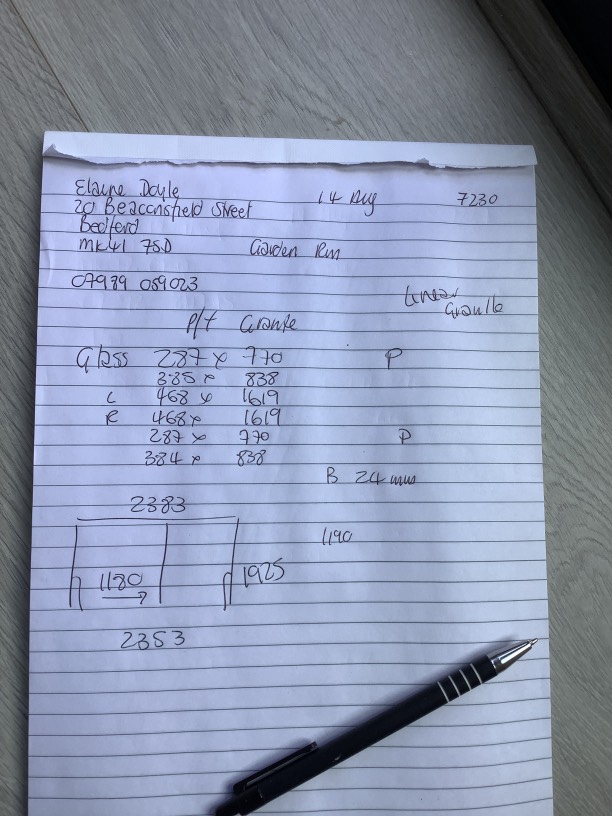 Elaine Doyle 14 Aug 7230
20 Beaconsfield Street
Bedford
MK41 7SD Garden Rm
07989 059023
Linear
Granite
P/T Granite
Glass 287 x 770 P
385 x 838
L 468 x 1619
R 468 x 1619
287 x 770 P
384 x 838
B 24 mm
2383
1190
1180 1925
2353